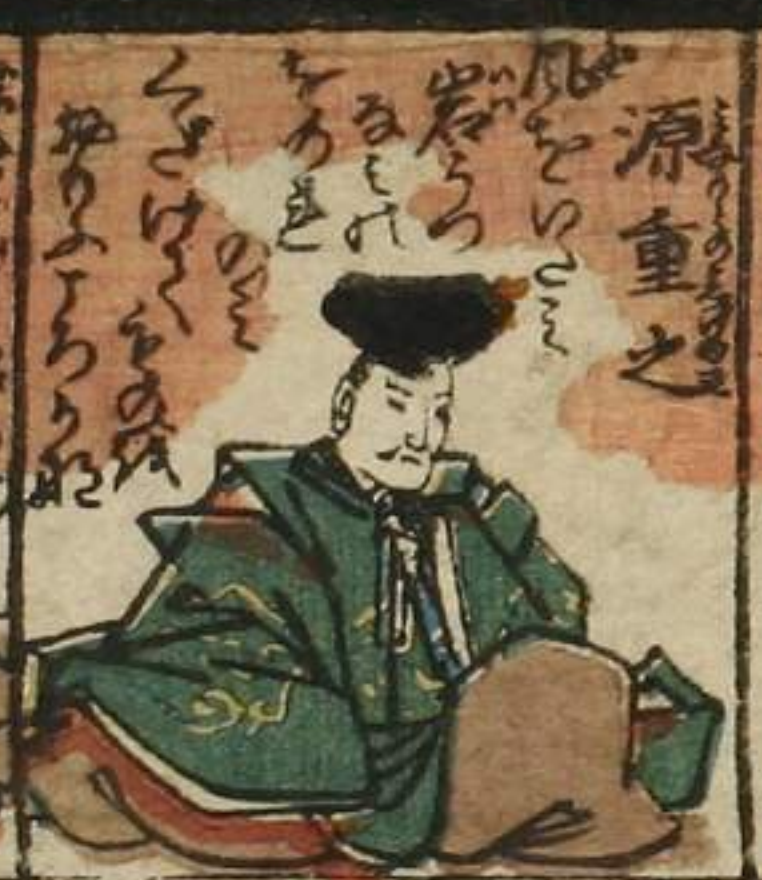 源重之
みなもとのしげゆき
風をいたみ
岩うつ
なみの
をのれ
のみ
くだけて
ものを
おもふころかな